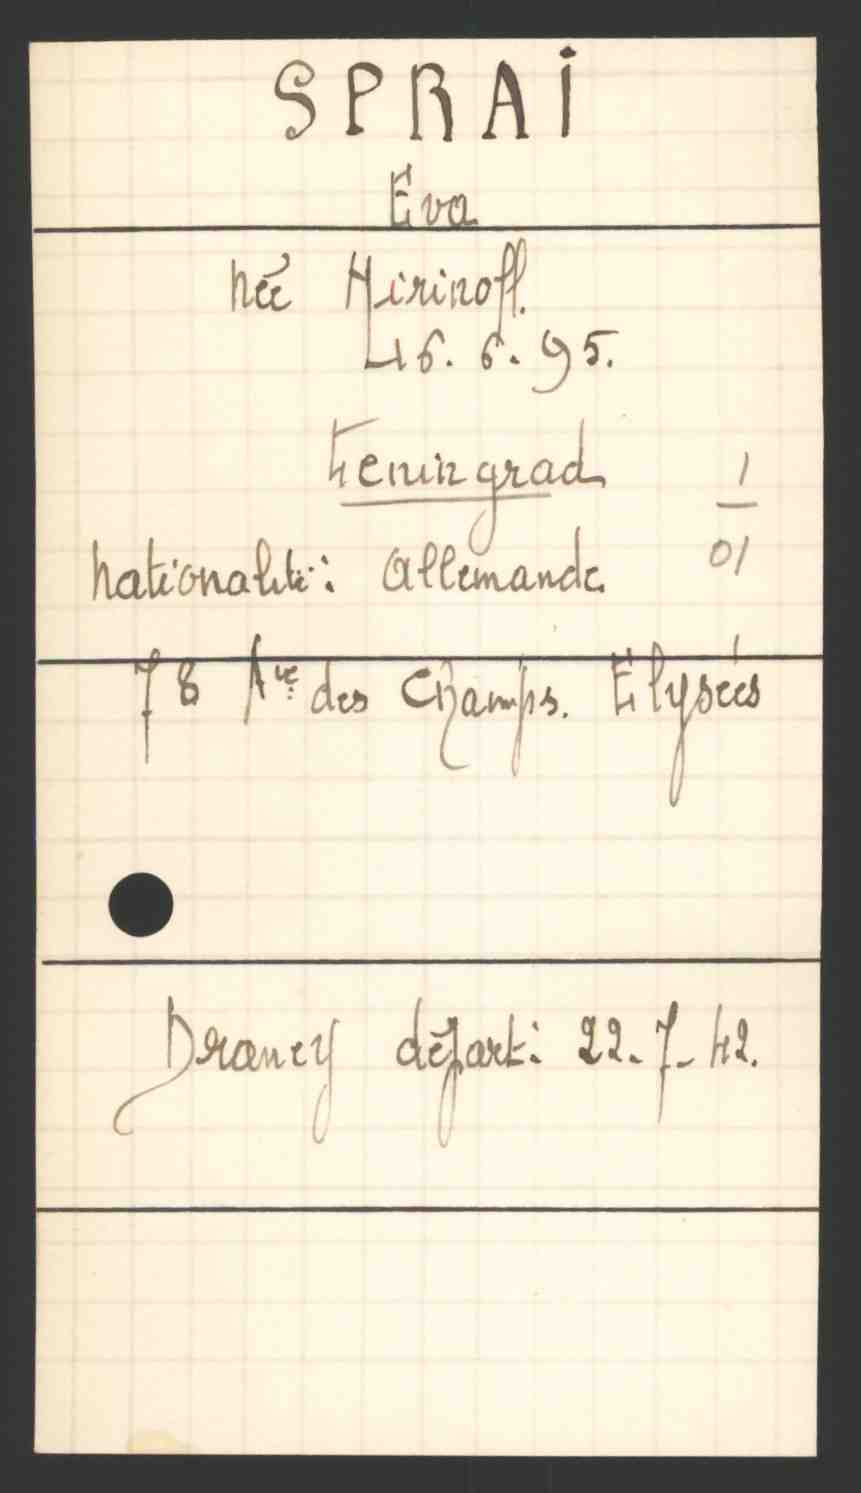 SPRAI
Eva
née Mirinoff.
16. 6. 95.
Leningrad
1
01
Nationalité: Allemande.
78 Ave des Champs. Elysées
Drancy départ: 22-7-42.